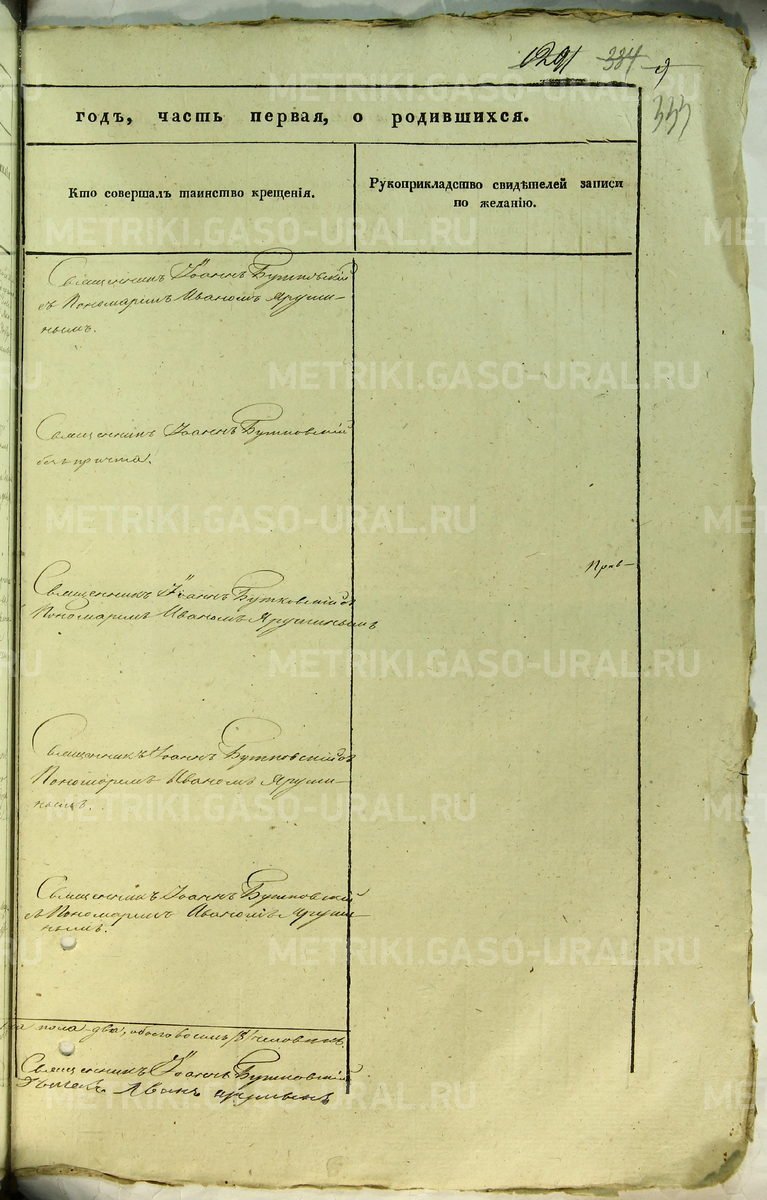 1291 384 9
333
годъ, часть первая, о родившихся.
Кто совершалъ таинство крещенія.
Рукоприкладство свидѣтелей записи
по желанію.
Священникъ Іоаннъ Бутковскій
съ Пономаремъ Иваномъ Яруши-
нымъ.
Священникъ Іоаннъ Бутковскій
безъ причта.
Священникъ Іоаннъ Бутковскій съ
Пономаремъ Иваномъ Ярушинымъ
Священникъ Іоаннъ Бутковскій съ
Пономаремъ Иваномъ Яруши-
нымъ.
Священникъ Іоаннъ Бутковскій
съ Пономаремъ Иваномъ Яруши-
нымъ.
пола два, обоего восемь /8/ человѣкъ
Священникъ Іоаннъ Бутковскій
Иванъ
METRIKI.GASO-URAL.RU